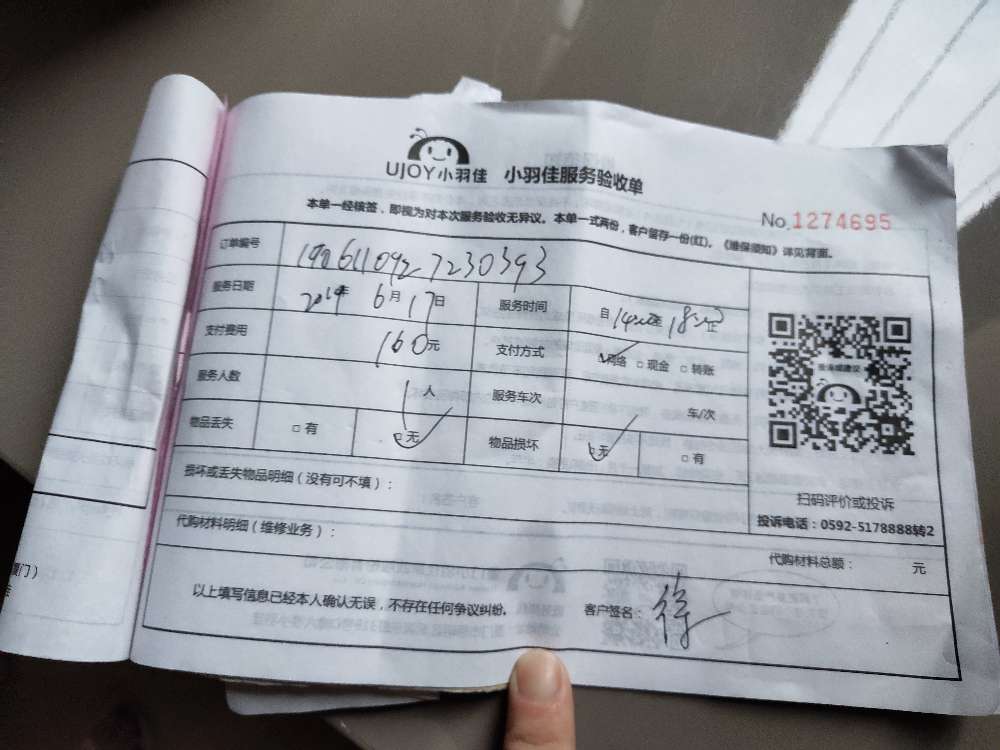 UJOY小羽佳 小羽佳服务验收单
本单一经核签，即视为对本次服务验收无异议。本单一式两份，客户留存一份(红)。《维保须知》详见背面。
No.1274695
订单编号 190611092 7230393
服务日期 2019年 6月17日 服务时间 自14:00至18:00止
支付费用 160元 支付方式 □网络 □现金 □转账
服务人数 1人 服务车次 车/次
物品丢失 □有 □无 物品损坏 □无 □有
损坏或丢失物品明细（没有可不填）：
扫码评价或投诉
投诉电话：0592-5178888转2
代购材料明细（维修业务）：
代购材料总额： 元
以上填写信息已经本人确认无误，不存在任何争议纠纷。 客户签名：徐
厦门）